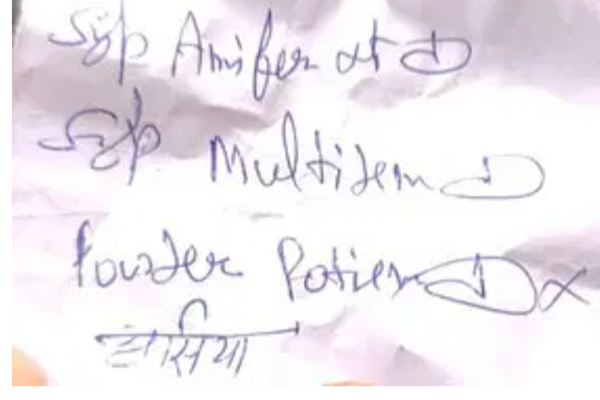 Syp Amifer xt ①
Syp Multizem ①
Powder Potien ① x
हासिया